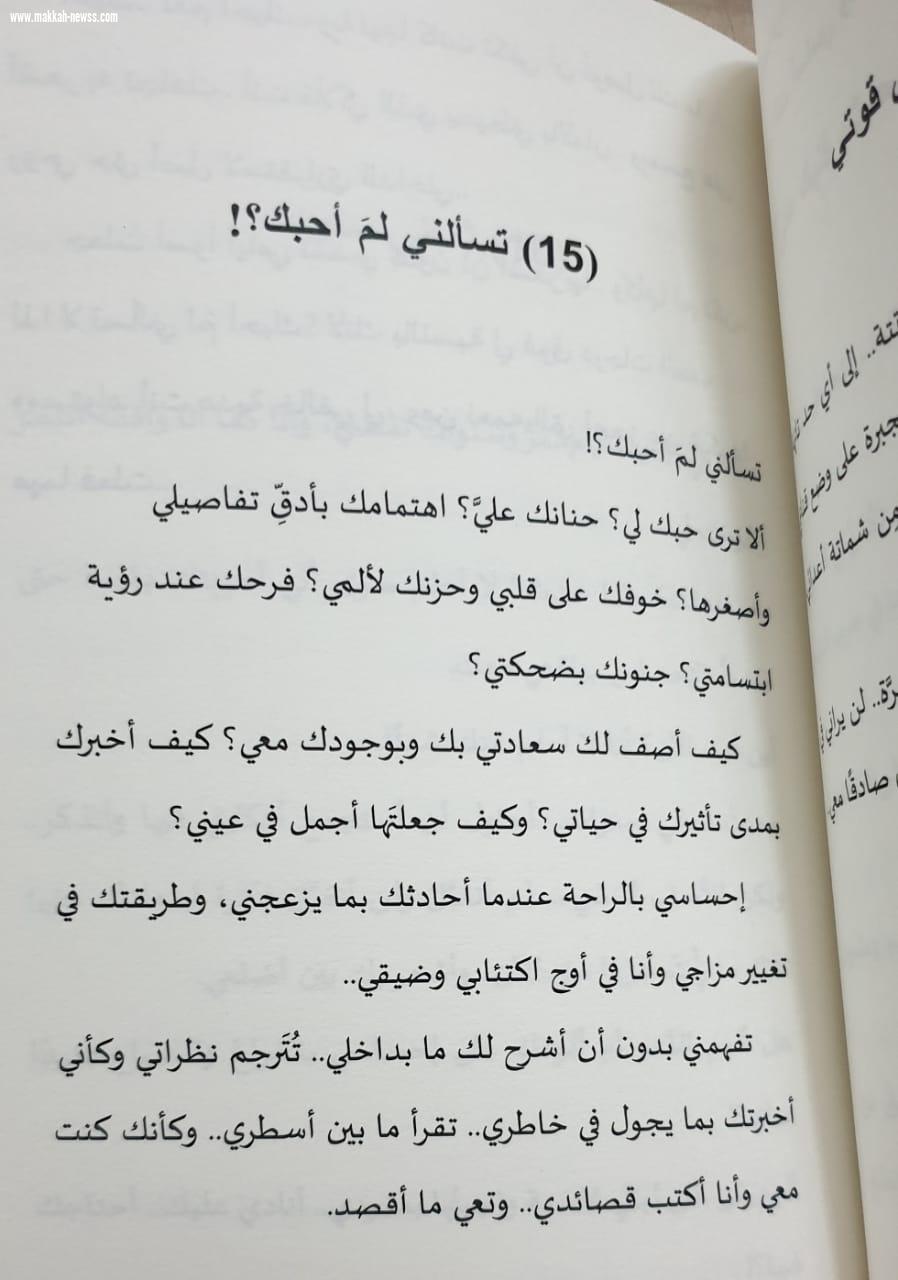 www.makkah-newss.com
(15) تسألني لمَ أحبك؟!
تسألني لمَ أحبك؟!
ألا ترى حبك لي؟ حنانك عليَّ؟ اهتمامك بأدقِّ تفاصيلي
وأصغرها؟ خوفك على قلبي وحزنك لألمي؟ فرحك عند رؤية
ابتسامتي؟ جنونك بضحكتي؟
كيف أصف لك سعادتي بك وبوجودك معي؟ كيف أخبرك
بمدى تأثيرك في حياتي؟ وكيف جعلتَها أجمل في عيني؟
إحساسي بالراحة عندما أحادثك بما يزعجني، وطريقتك في
تغيير مزاجي وأنا في أوج اكتئابي وضيقي..
تفهمني بدون أن أشرح لك ما بداخلي.. تُتَرجم نظراتي وكأني
أخبرتك بما يجول في خاطري.. تقرأ ما بين أسطري.. وكأنك كنت
معي وأنا أكتب قصائدي.. وتعي ما أقصد.
قوتي
.. إلى أي حد
على وضع
من شماتة
.. لن يراني
صادقًا